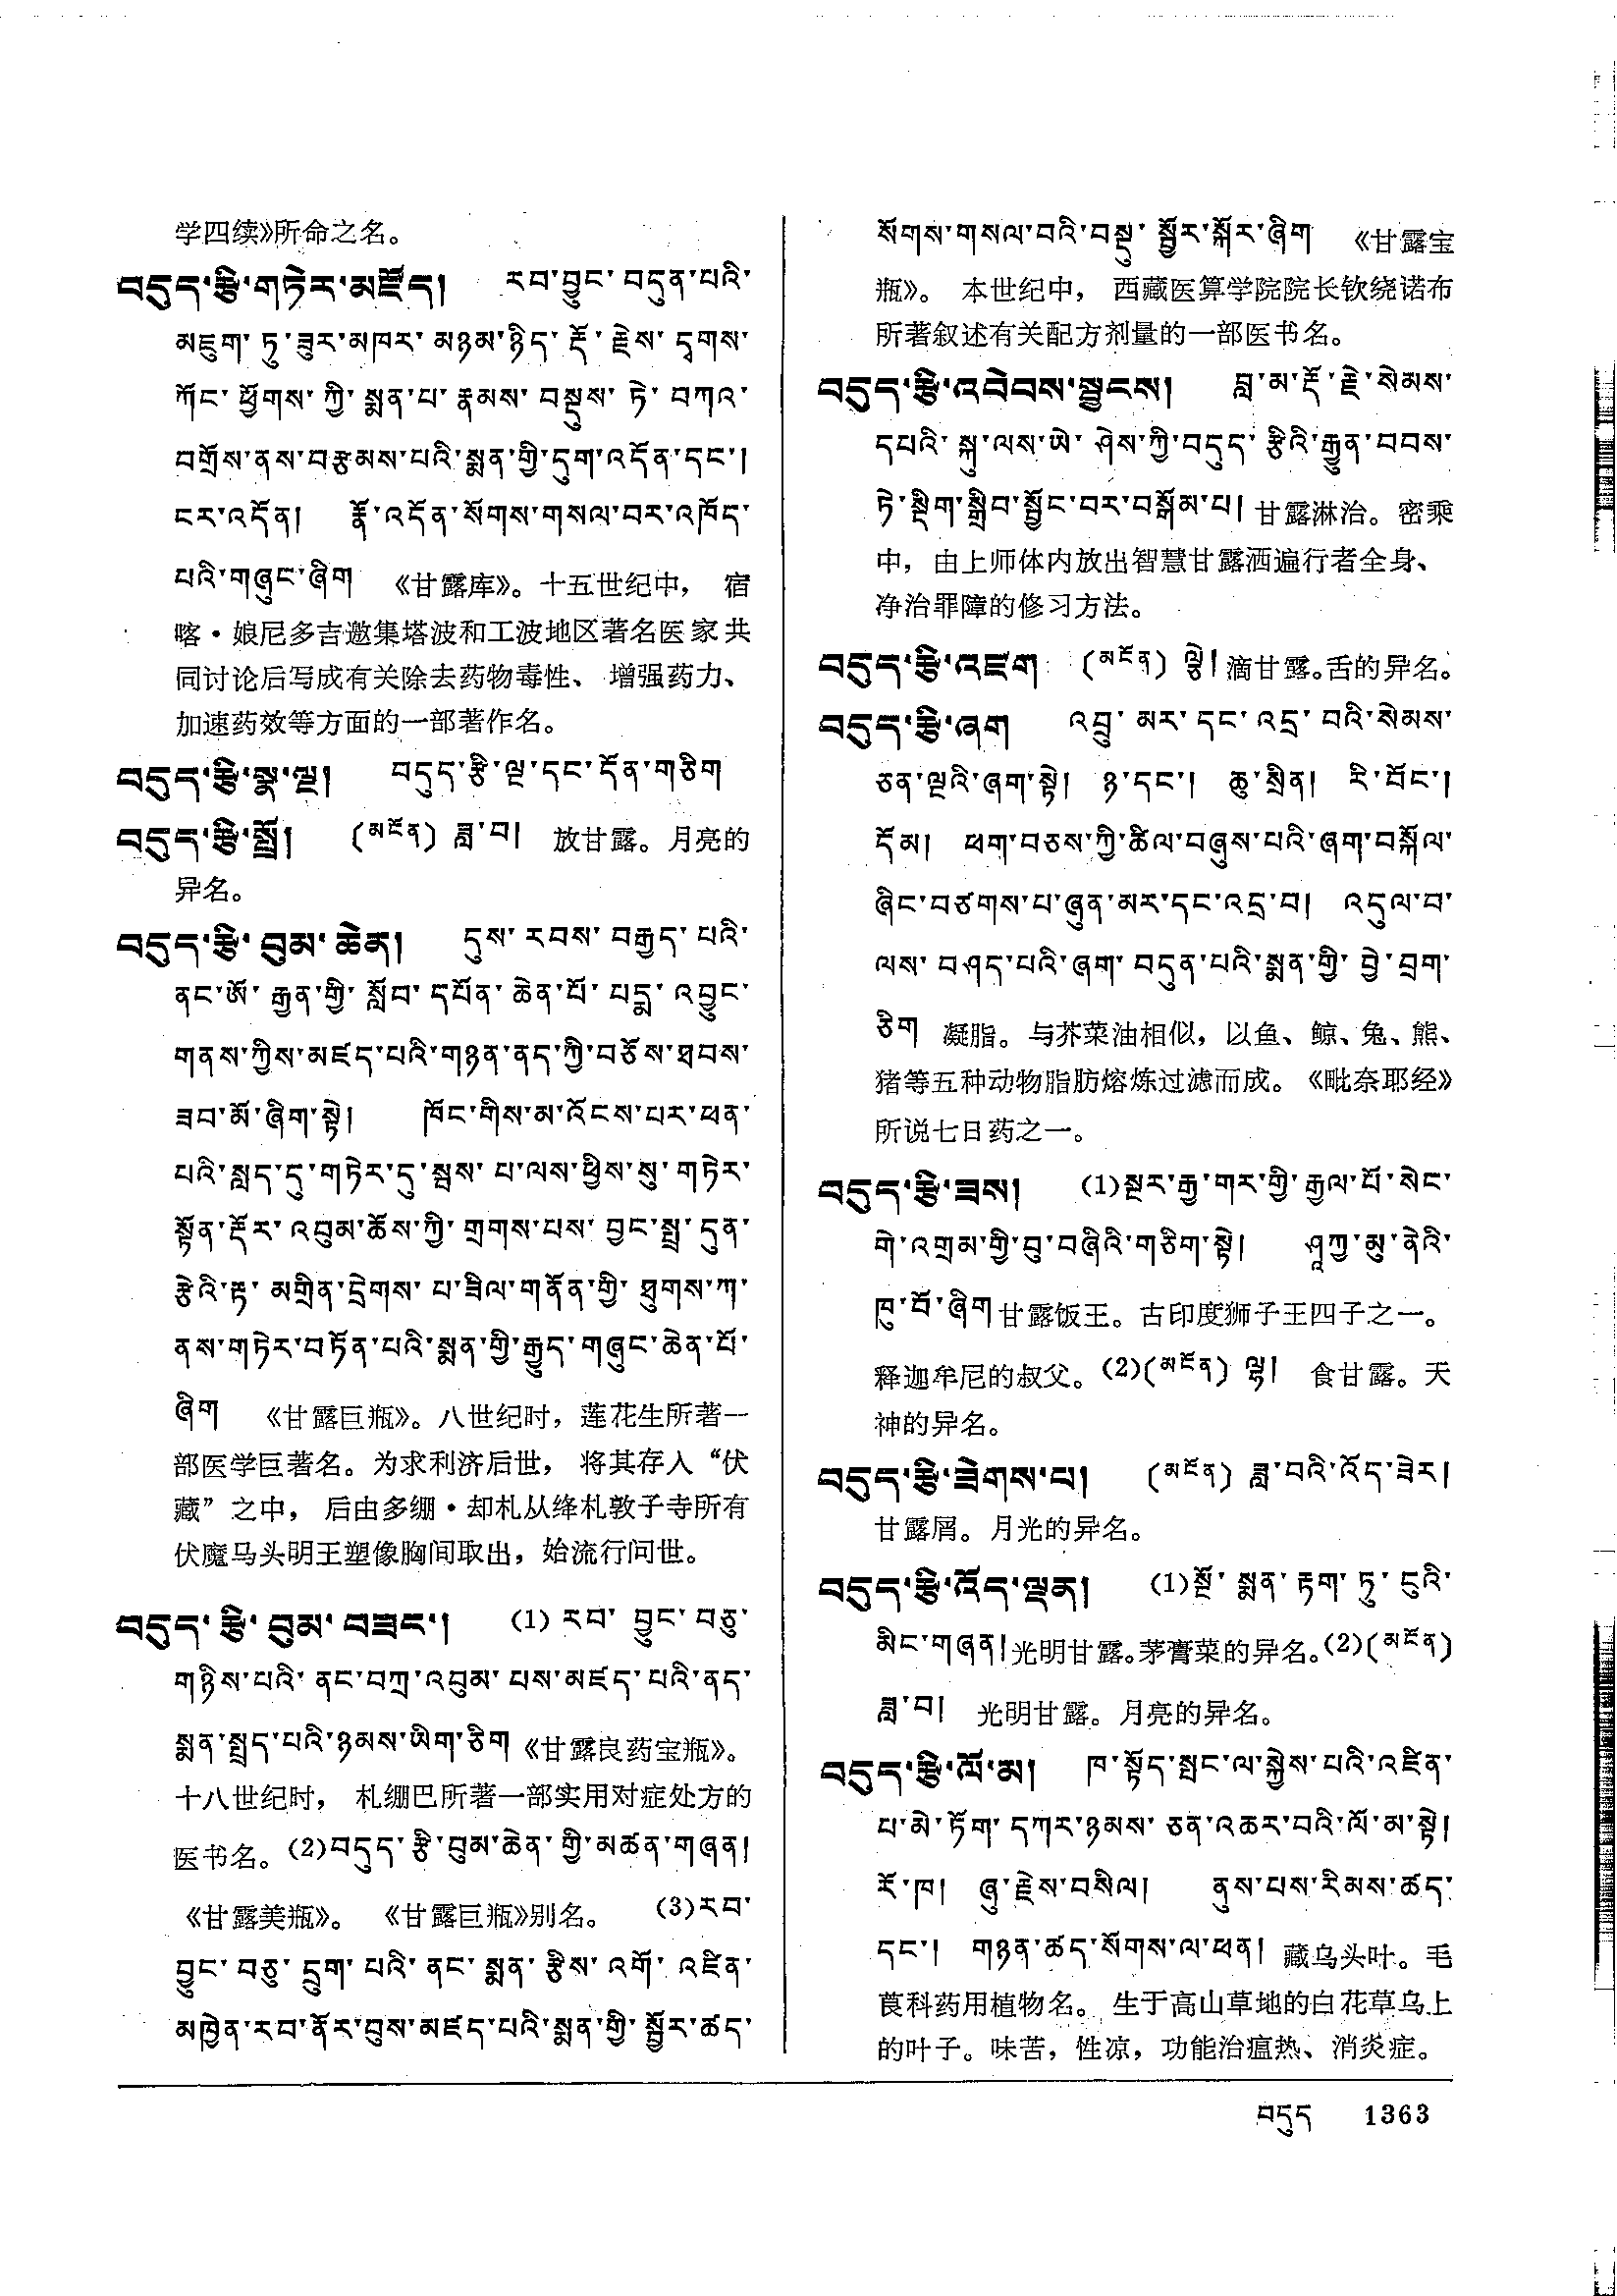 学四续》所命之名。
བདུད་རྩི་གཏེར་མཛོད། རབ་བྱུང་བདུན་པའི་
མཇུག་ཏུ་ཟུར་མཁར་མཉམ་ཉིད་རྡོ་རྗེས་དྭགས་
ཀོང་ཕྱོགས་ཀྱི་སྨན་པ་རྣམས་བསྡུས་ཏེ་བཀའ་
བགྲོས་ནས་བརྩམས་པའི་སྨན་གྱི་དུག་འདོན་དང་།
ངར་འདོན། རྣོ་འདོན་སོགས་གསལ་བར་འཁོད་
པའི་གཞུང་ཞིག 《甘露库》。十五世纪中， 宿
喀·娘尼多吉邀集塔波和工波地区著名医家共
同讨论后写成有关除去药物毒性、 增强药力、
加速药效等方面的一部著作名。
བདུད་རྩི་སྣ་ལྔ། བདུད་རྩི་ལྔ་དང་དོན་གཅིག
བདུད་རྩི་སྤྲོ། (མངོན) ཟླ་བ། 放甘露。月亮的
异名。
བདུད་རྩི་བུམ་ཆེན། དུས་རབས་བརྒྱད་པའི་
ནང་ཨོ་རྒྱན་གྱི་སློབ་དཔོན་ཆེན་པོ་པདྨ་འབྱུང་
གནས་ཀྱིས་མཛད་པའི་གཉན་ནད་ཀྱི་བཅོས་ཐབས་
ཟབ་མོ་ཞིག་སྟེ། ཁོང་གིས་མ་འོངས་པར་ཕན་
པའི་སླད་དུ་གཏེར་དུ་སྦས་པ་ལས་ཕྱིས་སུ་གཏེར་
སྟོན་རྡོར་འབུམ་ཆོས་ཀྱི་གྲགས་པས་བྱང་སྤྲ་དུན་
རྩེའི་རྟ་མགྲིན་དྲེགས་པ་ཟིལ་གནོན་གྱི་ཐུགས་ཀ་
ནས་གཏེར་བཏོན་པའི་སྨན་གྱི་རྒྱུད་གཞུང་ཆེན་པོ་
ཞིག 《甘露巨瓶》。八世纪时，莲花生所著一
部医学巨著名。为求利济后世， 将其存入“伏
藏”之中， 后由多绷·却札从绛札敦子寺所有
伏魔马头明王塑像胸间取出，始流行问世。
བདུད་རྩི་བུམ་བཟང་། (1) རབ་བྱུང་བཅུ་
གཉིས་པའི་ནང་བཀྲ་འབུམ་པས་མཛད་པའི་ནད་
སྨན་སྤྲད་པའི་ཉམས་ཡིག་ཅིག 《甘露良药宝瓶》。
十八世纪时， 札绷巴所著一部实用对症处方的
医书名。(2)བདུད་རྩི་བུམ་ཆེན་གྱི་མཚན་གཞན།
《甘露美瓶》。 《甘露巨瓶》别名。 (3)རབ་
བྱུང་བཅུ་དྲུག་པའི་ནང་སྨན་རྩིས་འགོ་འཛིན་
མཁྱེན་རབ་ནོར་བུས་མཛད་པའི་སྨན་གྱི་སྦྱོར་ཚད་
སོགས་གསལ་བའི་བསྡུ་སྦྱོར་སྐོར་ཞིག 《甘露宝
瓶》。 本世纪中， 西藏医算学院院长钦绕诺布
所著叙述有关配方剂量的一部医书名。
བདུད་རྩི་འབེབས་སྦྱངས། བླ་མ་རྡོ་རྗེ་སེམས་
དཔའི་སྐུ་ལས་ཡེ་ཤེས་ཀྱི་བདུད་རྩིའི་རྒྱུན་བབས་
ཏེ་སྡིག་སྒྲིབ་སྦྱོང་བར་བསྒོམ་པ། 甘露淋治。密乘
中，由上师体内放出智慧甘露洒遍行者全身、
净治罪障的修习方法。
བདུད་རྩི་འཛག (མངོན) ལྕེ། 滴甘露。舌的异名。
བདུད་རྩི་ཞག འབྲུ་མར་དང་འདྲ་བའི་སེམས་
ཅན་ལྔའི་ཞག་སྟེ། ཉ་དང་། ཆུ་སྲིན། རི་བོང་།
དོམ། ཕག་བཅས་ཀྱི་ཚིལ་བཞུས་པའི་ཞག་བསྐོལ་
ཞིང་བཙགས་པ་ཞུན་མར་དང་འདྲ་བ། འདུལ་བ་
ལས་བཤད་པའི་ཞག་བདུན་པའི་སྨན་གྱི་བྱེ་བྲག་
ཅིག 凝脂。与芥菜油相似，以鱼、鲸、兔、熊、
猪等五种动物脂肪熔炼过滤而成。《毗奈耶经》
所说七日药之一。
བདུད་རྩི་ཟས། (1)སྔར་རྒྱ་གར་གྱི་རྒྱལ་པོ་སེང་
གེ་འགྲམ་གྱི་བུ་བཞིའི་གཅིག་སྟེ། ཤཱཀྱ་མུ་ནེའི་
ཁུ་བོ་ཞིག 甘露饭王。古印度狮子王四子之一。
释迦牟尼的叔父。(2)(མངོན) ལྷ། 食甘露。天
神的异名。
བདུད་རྩི་ཟེགས་པ། (མངོན) ཟླ་བའི་འོད་ཟེར།
甘露屑。月光的异名。
བདུད་རྩི་འོད་ལྡན། (1)སྔོ་སྨན་རྟག་ཏུ་ངུའི་
མིང་གཞན། 光明甘露。茅膏菜的异名。(2)(མངོན)
ཟླ་བ། 光明甘露。月亮的异名。
བདུད་རྩི་ལོ་མ། ཁ་སྟོད་སྤང་ལ་སྐྱེས་པའི་འཛིན་
པ་མེ་ཏོག་དཀར་ཉམས་ཅན་འཆར་བའི་ལོ་མ་སྟེ།
རོ་ཁ། ཞུ་རྗེས་བསིལ། ནུས་པས་རིམས་ཚད་
དང་། གཉན་ཚད་སོགས་ལ་ཕན། 藏乌头叶。毛
茛科药用植物名。生于高山草地的白花草乌上
的叶子。味苦，性凉，功能治瘟热、消炎症。
བདུད 1363